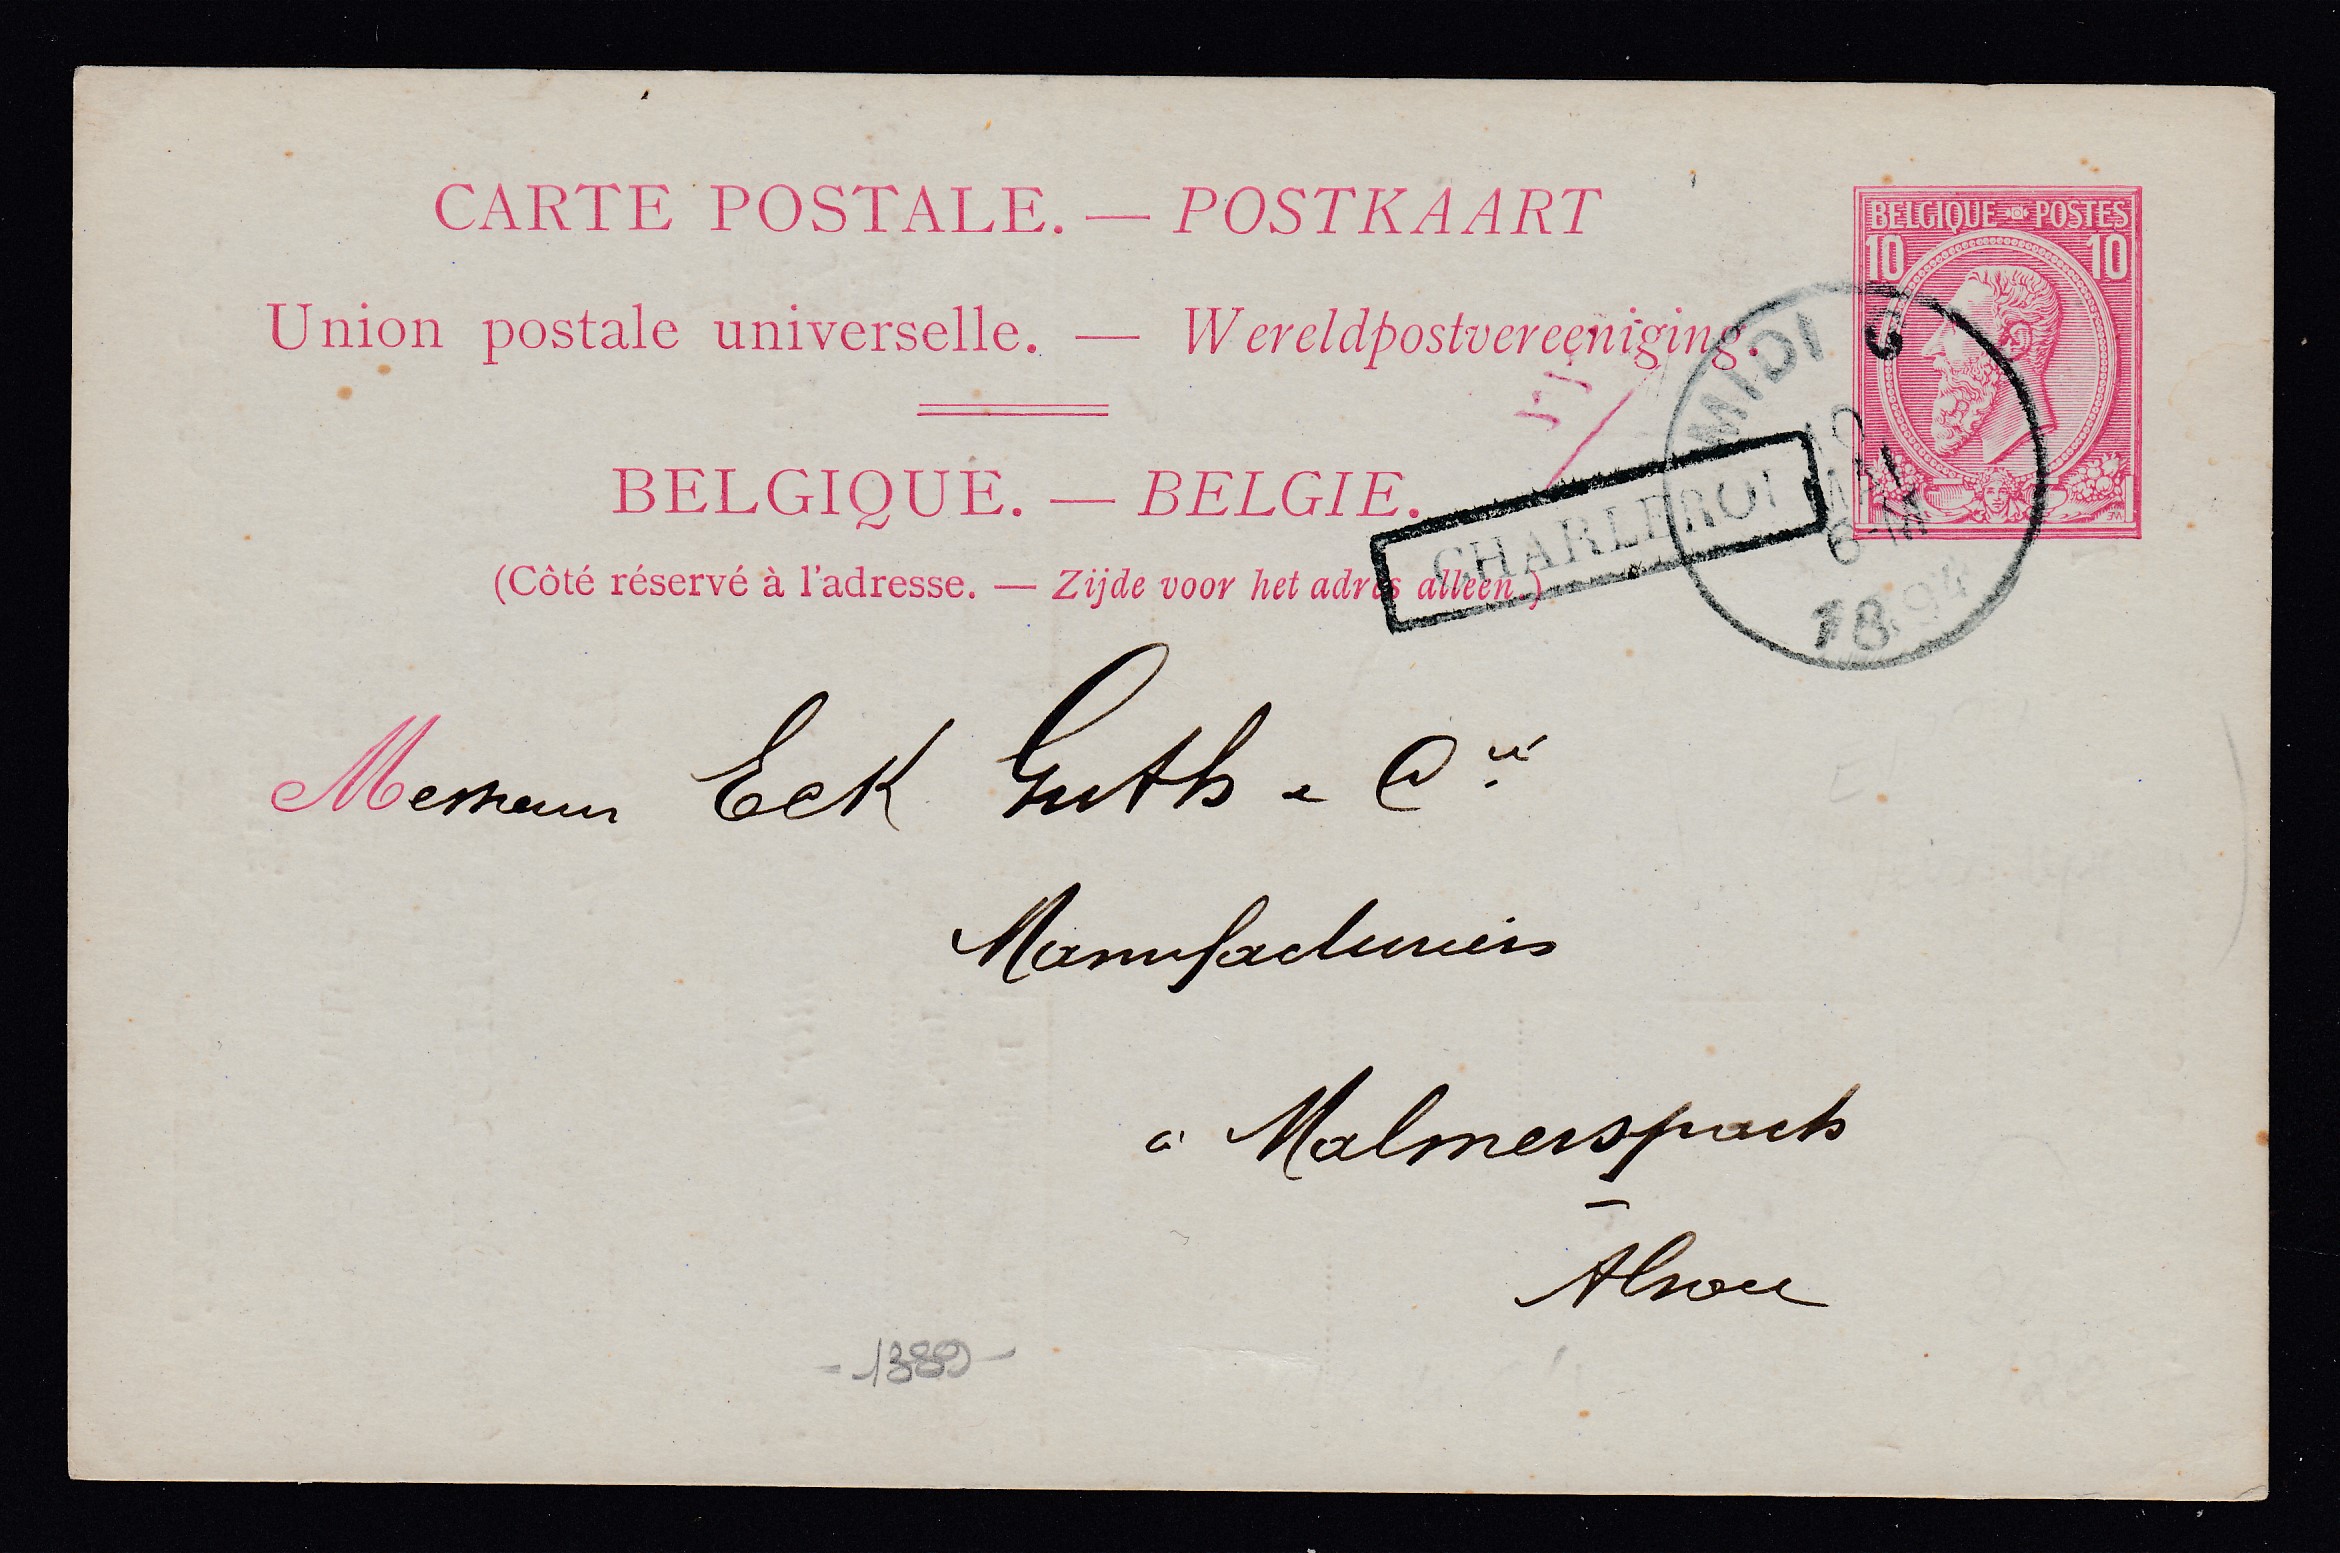 CARTE POSTALE. — POSTKAART
BELGIQUE POSTES
10 10
Union postale universelle. — Wereldpostvereeniging.
MIDI
10
MAI
6-M
1894
BELGIQUE. — BELGIE.
CHARLEROI
(Côté réservé à l'adresse. — Zijde voor het adres alleen.)
Messieurs Eck Guth & Cie
Manufacturiers
à Malmerspach
Alsace
-1389-